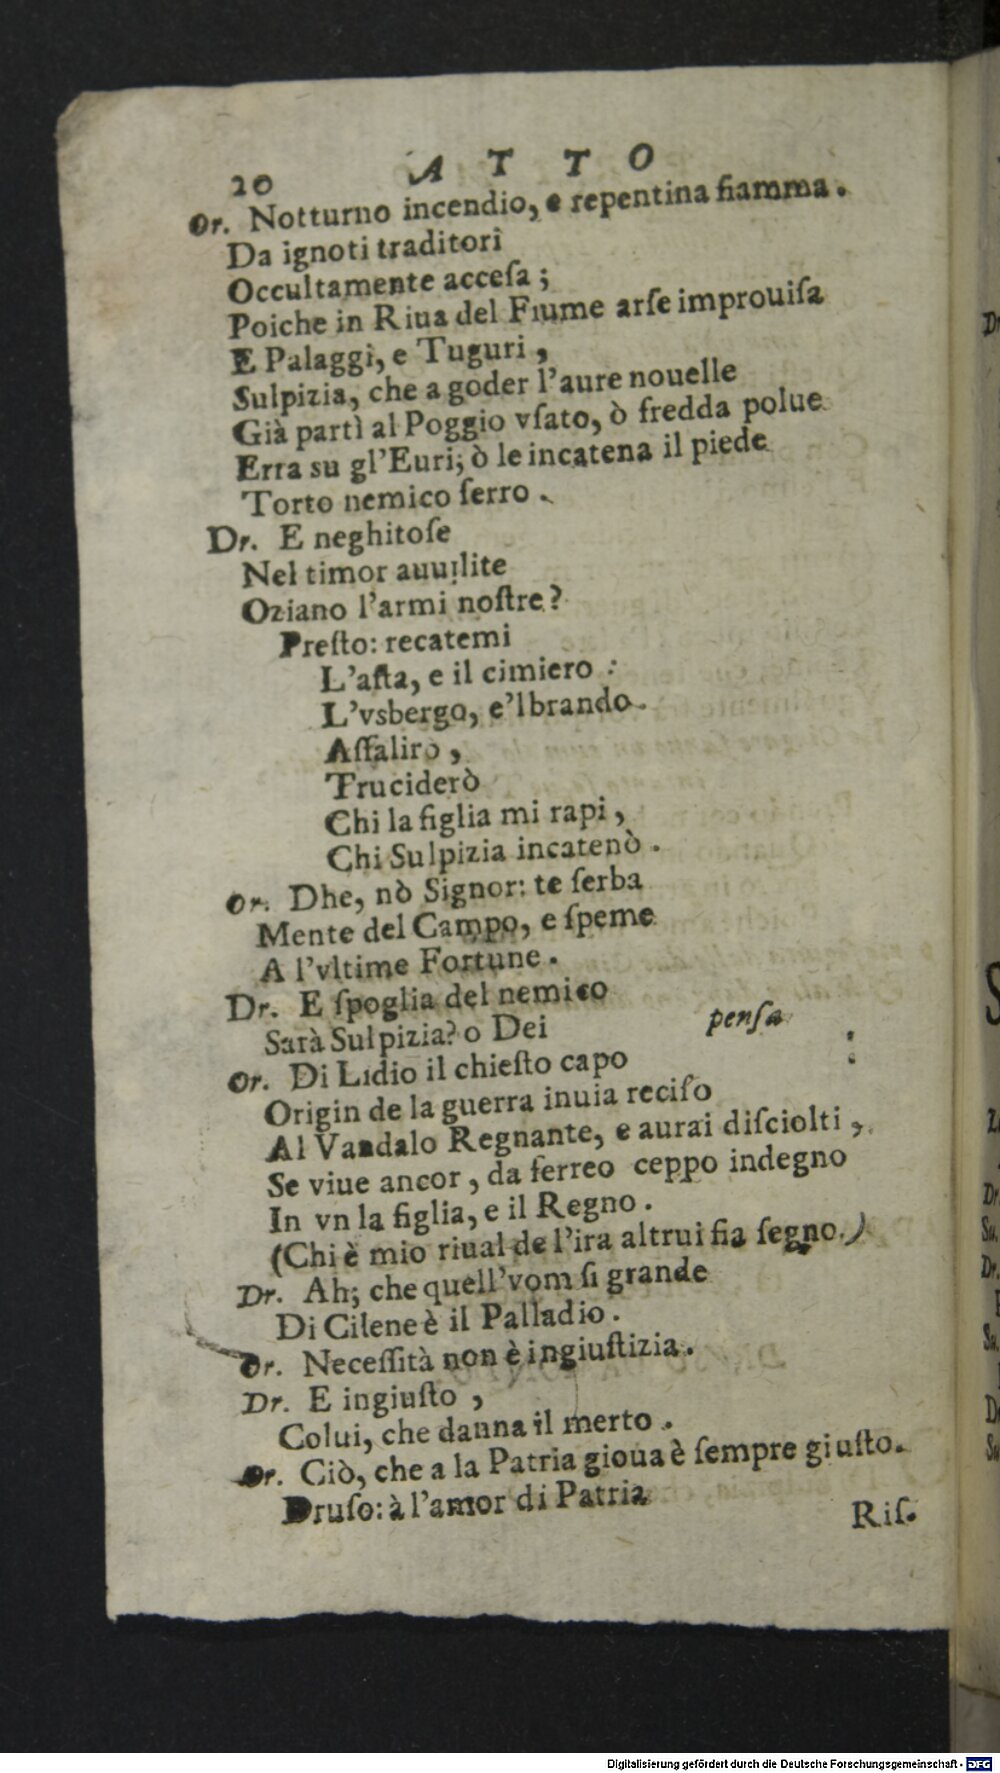 20 ATTO
Or. Notturno incendio, e repentina fiamma.
Da ignoti traditori
Occultamente acceſa ;
Poiche in Riua del Fiume arſe improuiſa
E Palaggi, e Tuguri ,
Sulpizia, che a goder l'aure nouelle
Già partì al Poggio vſato, ò fredda polue
Erra su gl'Euri; ò le incatena il piede
Torto nemico ferro .
Dr. E neghitoſe
Nel timor auuilite
Oziano l'armi noſtre?
Preſto: recatemi
L'aſta, e il cimiero :
L'vsbergo, e'l brando.
Aſſalirò ,
Truciderò
Chi la figlia mi rapi ,
Chi Sulpizia incatenò .
Or. Dhe, nò Signor: te ſerba
Mente del Campo, e ſpeme
A l'vltime Fortune .
Dr. E ſpoglia del nemico
Sarà Sulpizia? o Dei penſa
Or. Di Lidio il chieſto capo
Origin de la guerra inuia reciſo
Al Vandalo Regnante, e aurai diſciolti ,
Se viue ancor , da ferreo ceppo indegno
In vn la figlia, e il Regno .
(Chi è mio riual de l'ira altrui fia ſegno.)
Dr. Ah; che quell'vom ſi grande
Di Cilene è il Palladio .
Or. Neceſſità non è ingiuſtizia.
Dr. E ingiuſto ,
Colui, che danna il merto .
Or. Ciò, che a la Patria gioua è ſempre giuſto.
Druſo: à l'amor di Patria
Riſ.
Digitalisierung gefördert durch die Deutsche Forschungsgemeinschaft - DFG